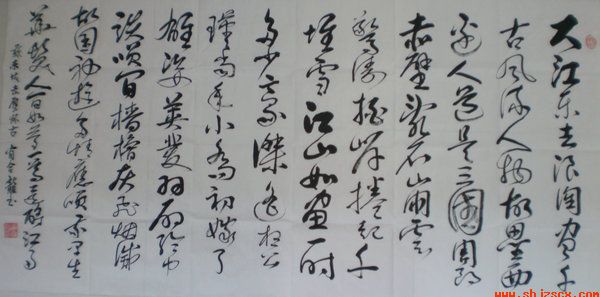 大江东去浪淘尽千
古风流人物故垒西
边人道是三國周郎
赤壁乱石崩云
惊涛拍岸捲起千
堆雪江山如画一时
多少豪傑遥想公
瑾当年小乔初嫁了
雄姿英发羽扇纶巾
谈笑间樯橹灰飞烟灭
故国神游多情应笑我早生
华发人间如梦一尊还酹江月
苏东坡赤壁怀古
www.shjzscx.com